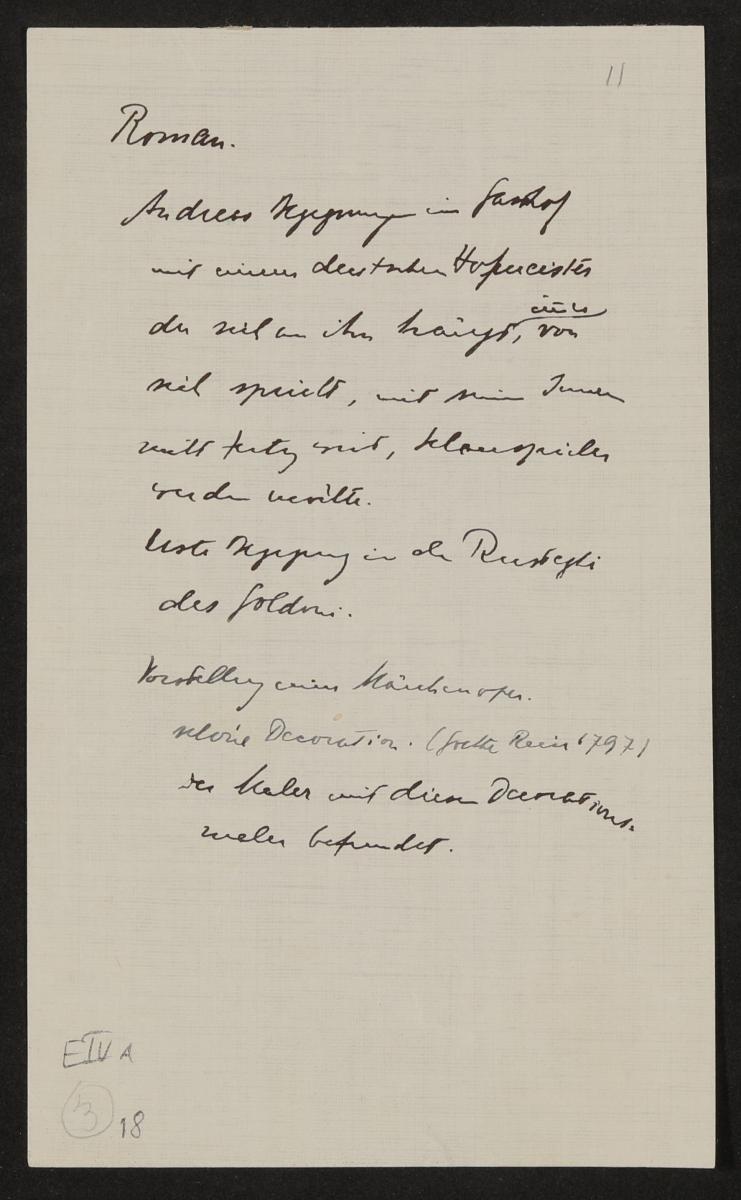 11
Roman.
Andreas Begegnungen im Gasthof
mit einem deutschen Hofmeister
der sich an ihn hängt, von
sich spricht, mit seinem Innern
nicht fertig wird, Schauspieler
werden möchte.
Erste Begegnung in den Rusteghi
des Goldoni.
Vorstellung einer Märchenoper.
schöne Decoration. (Goethe Reise 1797)
der Maler mit diesem Decorations-
maler befreundet.
E IV A
3 18